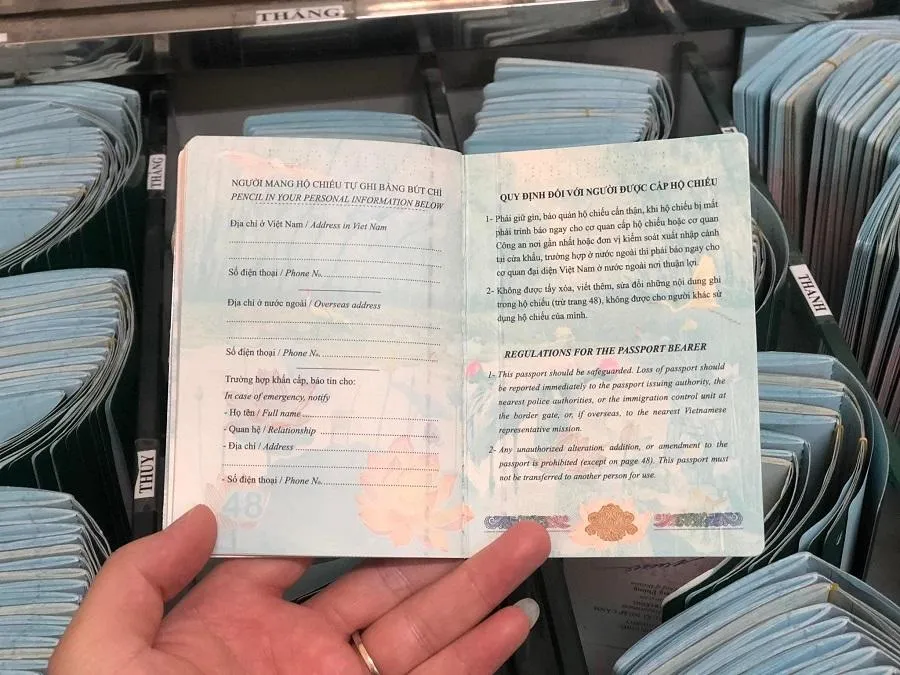 THẮNG
THẮNG
THUY
THANH
NGƯỜI MANG HỘ CHIẾU TỰ GHI BẰNG BÚT CHÌ
PENCIL IN YOUR PERSONAL INFORMATION BELOW
Địa chỉ ở Việt Nam / Address in Viet Nam
Số điện thoại / Phone No.
Địa chỉ ở nước ngoài / Overseas address
Số điện thoại / Phone No.
Trường hợp khẩn cấp, báo tin cho:
In case of emergency, notify
- Họ tên / Full name
- Quan hệ / Relationship
- Địa chỉ / Address
- Số điện thoại / Phone No.
48
QUY ĐỊNH ĐỐI VỚI NGƯỜI ĐƯỢC CẤP HỘ CHIẾU
1- Phải giữ gìn, bảo quản hộ chiếu cẩn thận, khi hộ chiếu bị mất
phải trình báo ngay cho cơ quan cấp hộ chiếu hoặc cơ quan
Công an nơi gần nhất hoặc đơn vị kiểm soát xuất nhập cảnh
tại cửa khẩu, trường hợp ở nước ngoài thì phải báo ngay cho
cơ quan đại diện Việt Nam ở nước ngoài nơi thuận lợi.
2- Không được tẩy xóa, viết thêm, sửa đổi những nội dung ghi
trong hộ chiếu (trừ trang 48), không được cho người khác sử
dụng hộ chiếu của mình.
REGULATIONS FOR THE PASSPORT BEARER
1- This passport should be safeguarded. Loss of passport should
be reported immediately to the passport issuing authority, the
nearest police authorities, or the immigration control unit at
the border gate, or, if overseas, to the nearest Vietnamese
representative mission.
2- Any unauthorized alteration, addition, or amendment to the
passport is prohibited (except on page 48). This passport must
not be transferred to another person for use.